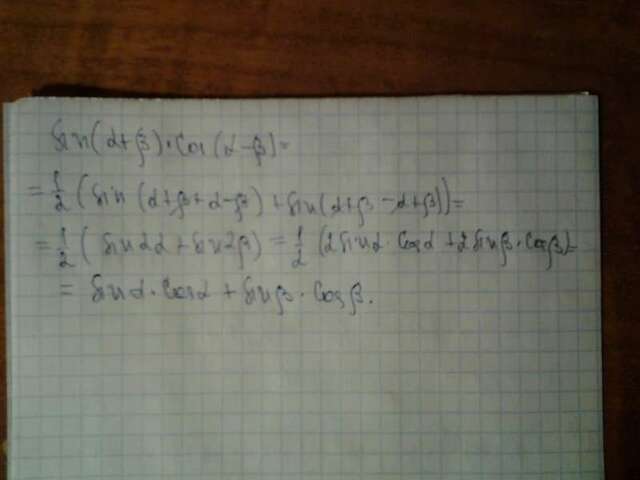 sin(α+β)·cos(α-β)=
=1/2(sin(α+β+α-β)+sin(α+β-α+β))=
=1/2(sin2α+sin2β)=1/2(2sinα·cosα+2sinβ·cosβ)=
=sinα·cosα+sinβ·cosβ.